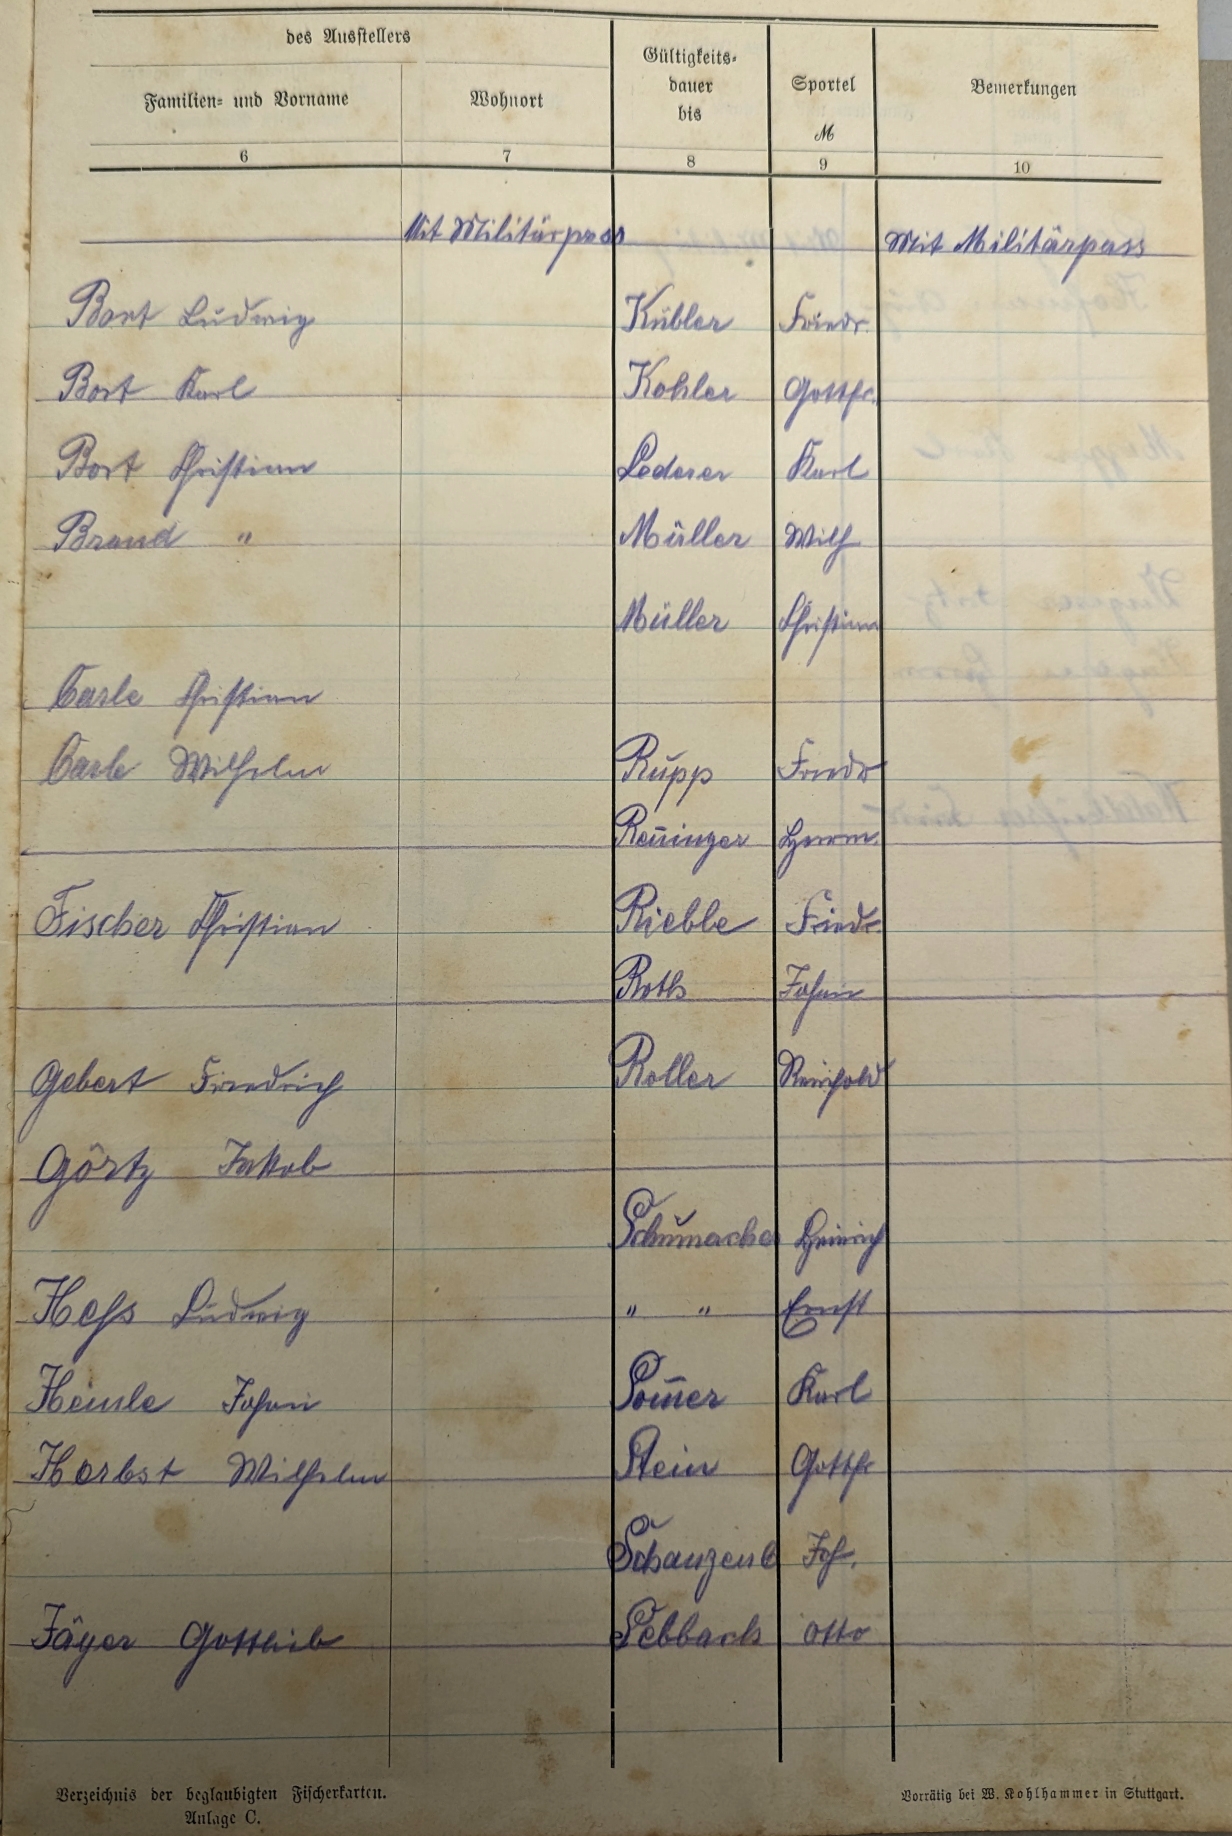 des Ausstellers
Familien- und Vorname Wohnort Gültigkeits-dauer bis Sportel M Bemerkungen
6 7 8 9 10
Mit Militärpass Mit Militärpass
Bort Ludwig Kübler Friedr.
Bort Karl Kohler Gottfr.
Bort Christian Lederer Karl
Brand " Müller Wilh
Müller Christian
Carle Christian
Carle Wilhelm Rupp Friedr
Reuinger Herm.
Fischer Christian Rieble Friedr.
Roth Johann
Gebert Friedrich Roller Reinhold
Görtz Jakob
Schumacher Heinrich
Hess Ludwig " " Ernst
Heinle Johann Som̄er Karl
Herbst Wilhelm Stein Gottfr
Schanzenb Joh.
Jäger Gottlieb Sebbach Otto
Verzeichnis der beglaubigten Fischerkarten.
Anlage C.
Vorrätig bei W. Kohlhammer in Stuttgart.